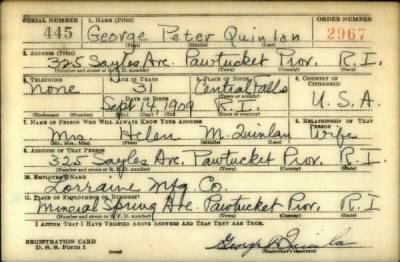 SERIAL NUMBER 1. NAME (Print) ORDER NUMBER
445 George Peter Quinlan 2967
(First) (Middle) (Last)
2. ADDRESS (Print)
325 Sayles Ave. Pawtucket Prov. R.I.
(Number and street or R. F. D. number) (Town) (County) (State)
3. TELEPHONE 4. AGE IN YEARS 5. PLACE OF BIRTH 6. COUNTRY OF CITIZENSHIP
None 31 Central Falls
DATE OF BIRTH (Town or county)
Sept 14 1909 R.I. U.S.A.
(Mo.) (Day) (Yr.) (State or country)
7. NAME OF PERSON WHO WILL ALWAYS KNOW YOUR ADDRESS 8. RELATIONSHIP OF THAT PERSON
Mrs. Helen M. Quinlan Wife
(Mr., Mrs., Miss) (First) (Middle) (Last)
9. ADDRESS OF THAT PERSON
325 Sayles Ave. Pawtucket Prov. R.I.
(Number and street or R. F. D. number) (Town) (County) (State)
10. EMPLOYER'S NAME
Lorraine Mfg. Co.
11. PLACE OF EMPLOYMENT OR BUSINESS
Mineral Spring Ave. Pawtucket Prov. R.I
(Number and street or R. F. D. number) (Town) (County) (State)
I AFFIRM THAT I HAVE VERIFIED ABOVE ANSWERS AND THAT THEY ARE TRUE.
REGISTRATION CARD
D. S. S. Form 1 (over) George P. Quinlan
(Registrant's signature)